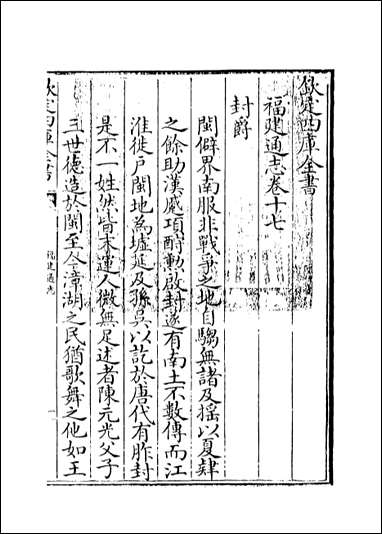 欽定四庫全書
福建通志卷十七
封爵
閩僻界南服非戰爭之地自騶無諸及揺以夏肄
之餘助漢滅項酬勲啟封遂有南土不數傳而江
淮徙戸閩地為墟延及孫吳以訖於唐代有胙封
是不一姓然皆末運人微無足述者陳元光父子
三世徳造於閩至今漳湖之民猶歌舞之他如王
欽定四庫全書
福建通志
一